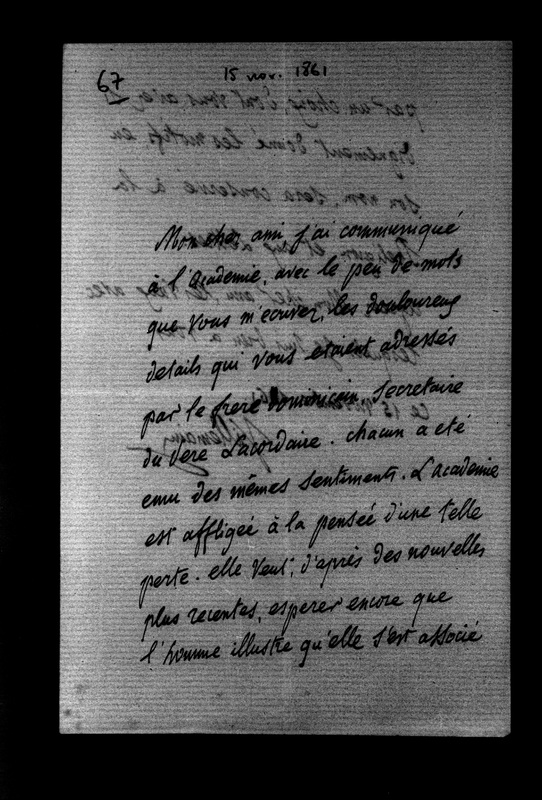 67
15 nov. 1861
Mon cher ami j'ai communiqué
à l'académie, avec le peu de mots
que vous m'ecrivez, les douloureux
details qui vous etaient adressés
par le frere dominicain, secretaire
du Pere Lacordaire. chacun a eté
emu des mêmes sentiments. L'academie
est affligée à la pensée d'une telle
perte. elle veut, d'après des nouvelles
plus recentes, esperer encore que
l'homme illustre qu'elle s'est associé